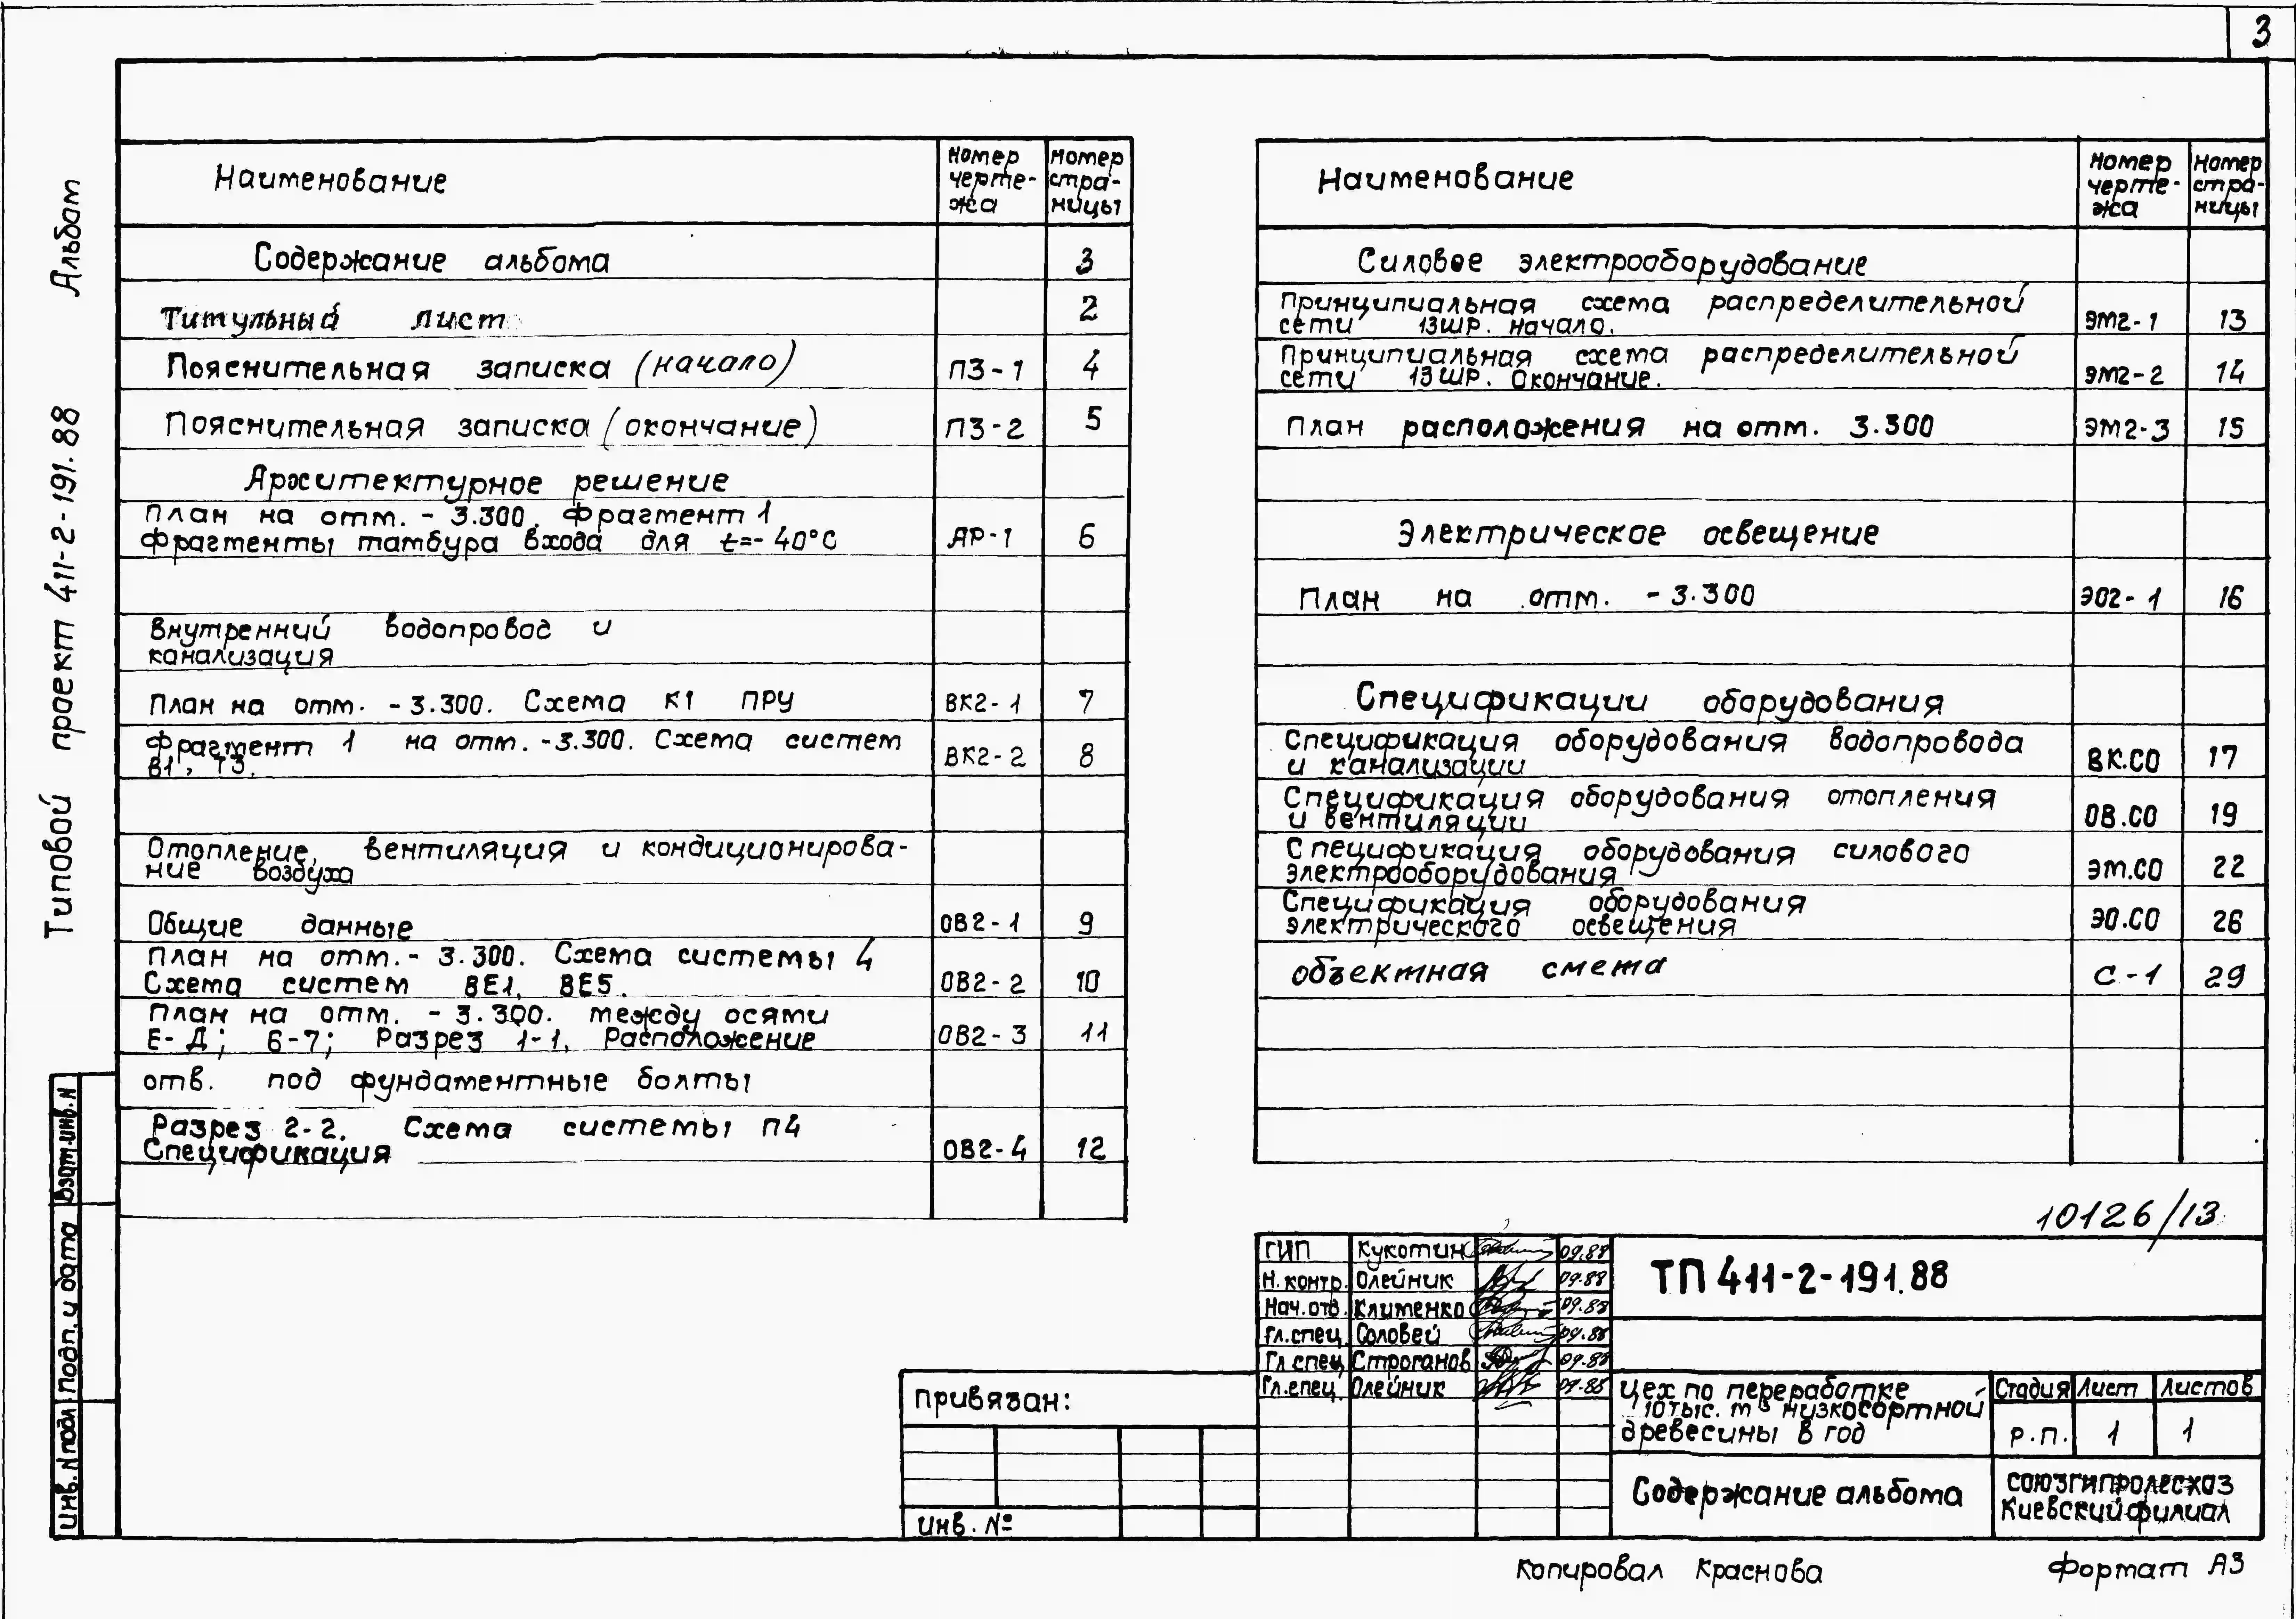 3
Типовой проект 411-2-191.88 Альбом
Наименование
Номер чертежа
Номер страницы
Содержание альбома 3
Титульный лист 2
Пояснительная записка (начало) ПЗ-1 4
Пояснительная записка (окончание) ПЗ-2 5
Архитектурное решение
План на отм. - 3.300. Фрагмент 1
Фрагменты тамбура входа для t=-40°С АР-1 6
Внутренний водопровод и
канализация
План на отм. -3.300. Схема К1 ПРУ ВК2-1 7
Фрагмент 1 на отм. -3.300. Схема систем
В1, Т3. ВК2-2 8
Отопление, вентиляция и кондиционирова-
ние воздуха
Общие данные ОВ2-1 9
План на отм.- 3.300. Схема системы 4
Схема систем ВЕ1, ВЕ5. ОВ2-2 10
План на отм. - 3.300. между осями
Е-Д; 6-7; Разрез 1-1. Расположение ОВ2-3 11
отв. под фундаментные болты
Разрез 2-2. Схема системы П4
Спецификация ОВ2-4 12
Наименование
Номер чертежа
Номер страницы
Силовое электрооборудование
Принципиальная схема распределительной
сети 13ШР. Начало. ЭМ2-1 13
Принципиальная схема распределительной
сети 13ШР. Окончание. ЭМ2-2 14
План расположения на отм. 3.300 ЭМ2-3 15
Электрическое освещение
План на отм. - 3.300 ЭО2-1 16
Спецификации оборудования
Спецификация оборудования водопровода
и канализации ВК.СО 17
Спецификация оборудования отопления
и вентиляции ОВ.СО 19
Спецификация оборудования силового
электрооборудования ЭМ.СО 22
Спецификация оборудования
электрического освещения ЭО.СО 26
Объектная смета С-1 29
10126/13
ГИП Кукотин 09.88
Н.контр. Олейник 09.88
Нач.отд. Клименко 09.88
Гл.спец. Соловей 09.88
Гл.спец. Строганов 09.88
Гл.спец. Олейник 09.88
ТП 411-2-191.88
Цех по переработке
10тыс. м³ низкосортной
древесины в год
Стадия Лист Листов
Р.П. 1 1
Содержание альбома
СОЮЗГИПРОЛЕСХОЗ
Киевский филиал
Привязан:
Инв. №
Взам.инв.N
Подп. и дата
Инв. N подл
Копировал Краснова
Формат А3